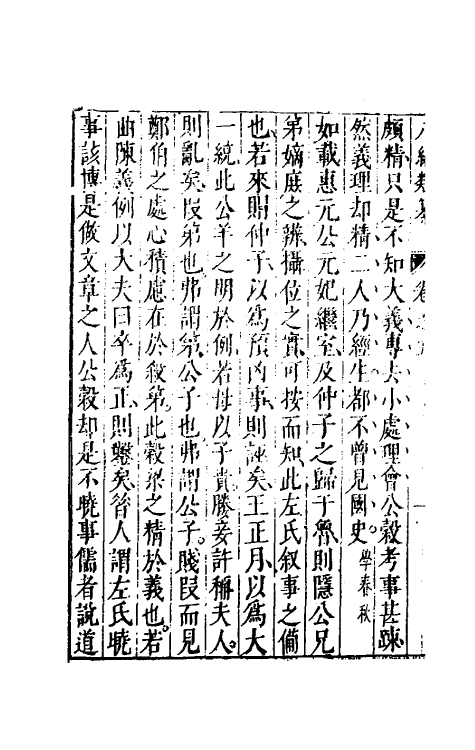 頗精只是不知大義專去小處理會公穀考事甚踈
然義理却精二人乃經生都不曾見國史。學春秋
如載惠元公元妃繼室及仲子之歸于魯則隱公兄
弟嫡庻之辨攝位之實可按而知此左氏叙事之備
也若來賵仲子以爲預凶事則誣矣王正月以爲大
一統此公羊之明於例若母以子貴媵妾許稱夫人。
則亂矣叚弟也弗謂弟公子也弗謂公子。賤叚而見
鄭伯之處心積慮在於殺弟此穀梁之精於義也。若
曲陳義例以大夫曰卒爲正則鑿矣昝人謂左氏曉
事該博是做文章之人公穀却是不曉事儒者說道